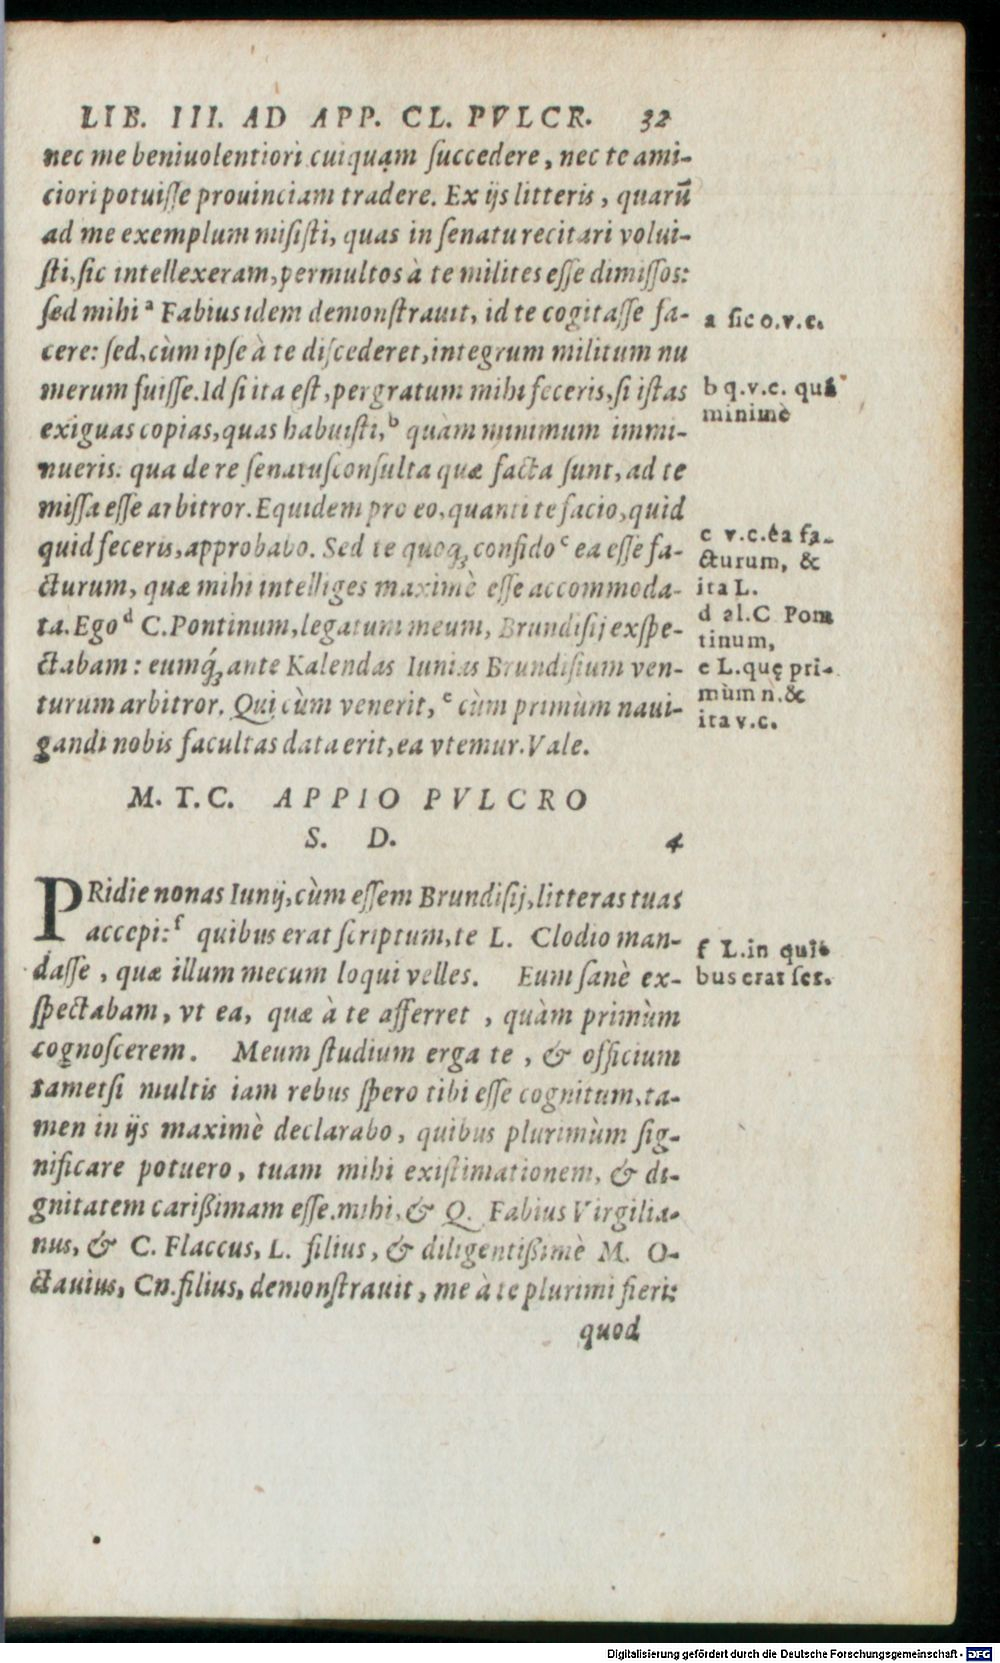 LIB. III. AD APP. CL. PVLCR. 32
nec me beniuolentiori cuiquam succedere, nec te ami-
ciori potuisse prouinciam tradere. Ex ijs litteris, quarū
ad me exemplum misisti, quas in senatu recitari volui-
sti, sic intellexeram, permultos à te milites esse dimissos:
sed mihi ᵃ Fabius idem demonstrauit, id te cogitasse fa-
cere: sed, cùm ipse à te discederet, integrum militum nu
merum fuisse. Id si ita est, pergratum mihi feceris, si istas
exiguas copias, quas habuisti, ᵇ quàm minimum immi-
nueris. qua de re senatusconsulta quæ facta sunt, ad te
missa esse arbitror. Equidem pro eo, quanti te facio, quid
quid feceris, approbabo. Sed te quoq; confido ᶜ ea esse fa-
cturum, quæ mihi intelliges maximè esse accommoda-
ta. Ego ᵈ C. Pontinum, legatum meum, Brundisij exspe-
ctabam: eumq́; ante Kalendas Iunias Brundisium ven-
turum arbitror. Qui cùm venerit, ᵉ cùm primùm naui-
gandi nobis facultas data erit, ea vtemur. Vale.
a sic o.v.c.
b q.v.c. quá
minimè
c v.c. ea fa-
cturum, &
ita L.
d al. C Pom
tinum,
e L. quę pri-
mùm n. &
ita v.c.
M. T. C. APPIO PVLCRO
S. D. 4
PRidie nonas Iunij, cùm essem Brundisij, litteras tuas
accepi: ᶠ quibus erat scriptum, te L. Clodio man-
dasse, quæ illum mecum loqui velles. Eum sanè ex-
spectabam, vt ea, quæ à te afferret, quàm primùm
cognoscerem. Meum studium erga te, & officium
tametsi multis iam rebus spero tibi esse cognitum, ta-
men in ijs maximè declarabo, quibus plurimùm sig-
nificare potuero, tuam mihi existimationem, & di-
gnitatem carißimam esse. mihi, & Q. Fabius Virgilia-
nus, & C. Flaccus, L. filius, & diligentißimè M. O-
ctauius, Cn. filius, demonstrauit, me à te plurimi fieri:
f L. in qui-
bus erat scr.
quod
Digitalisierung gefördert durch die Deutsche Forschungsgemeinschaft - DFG